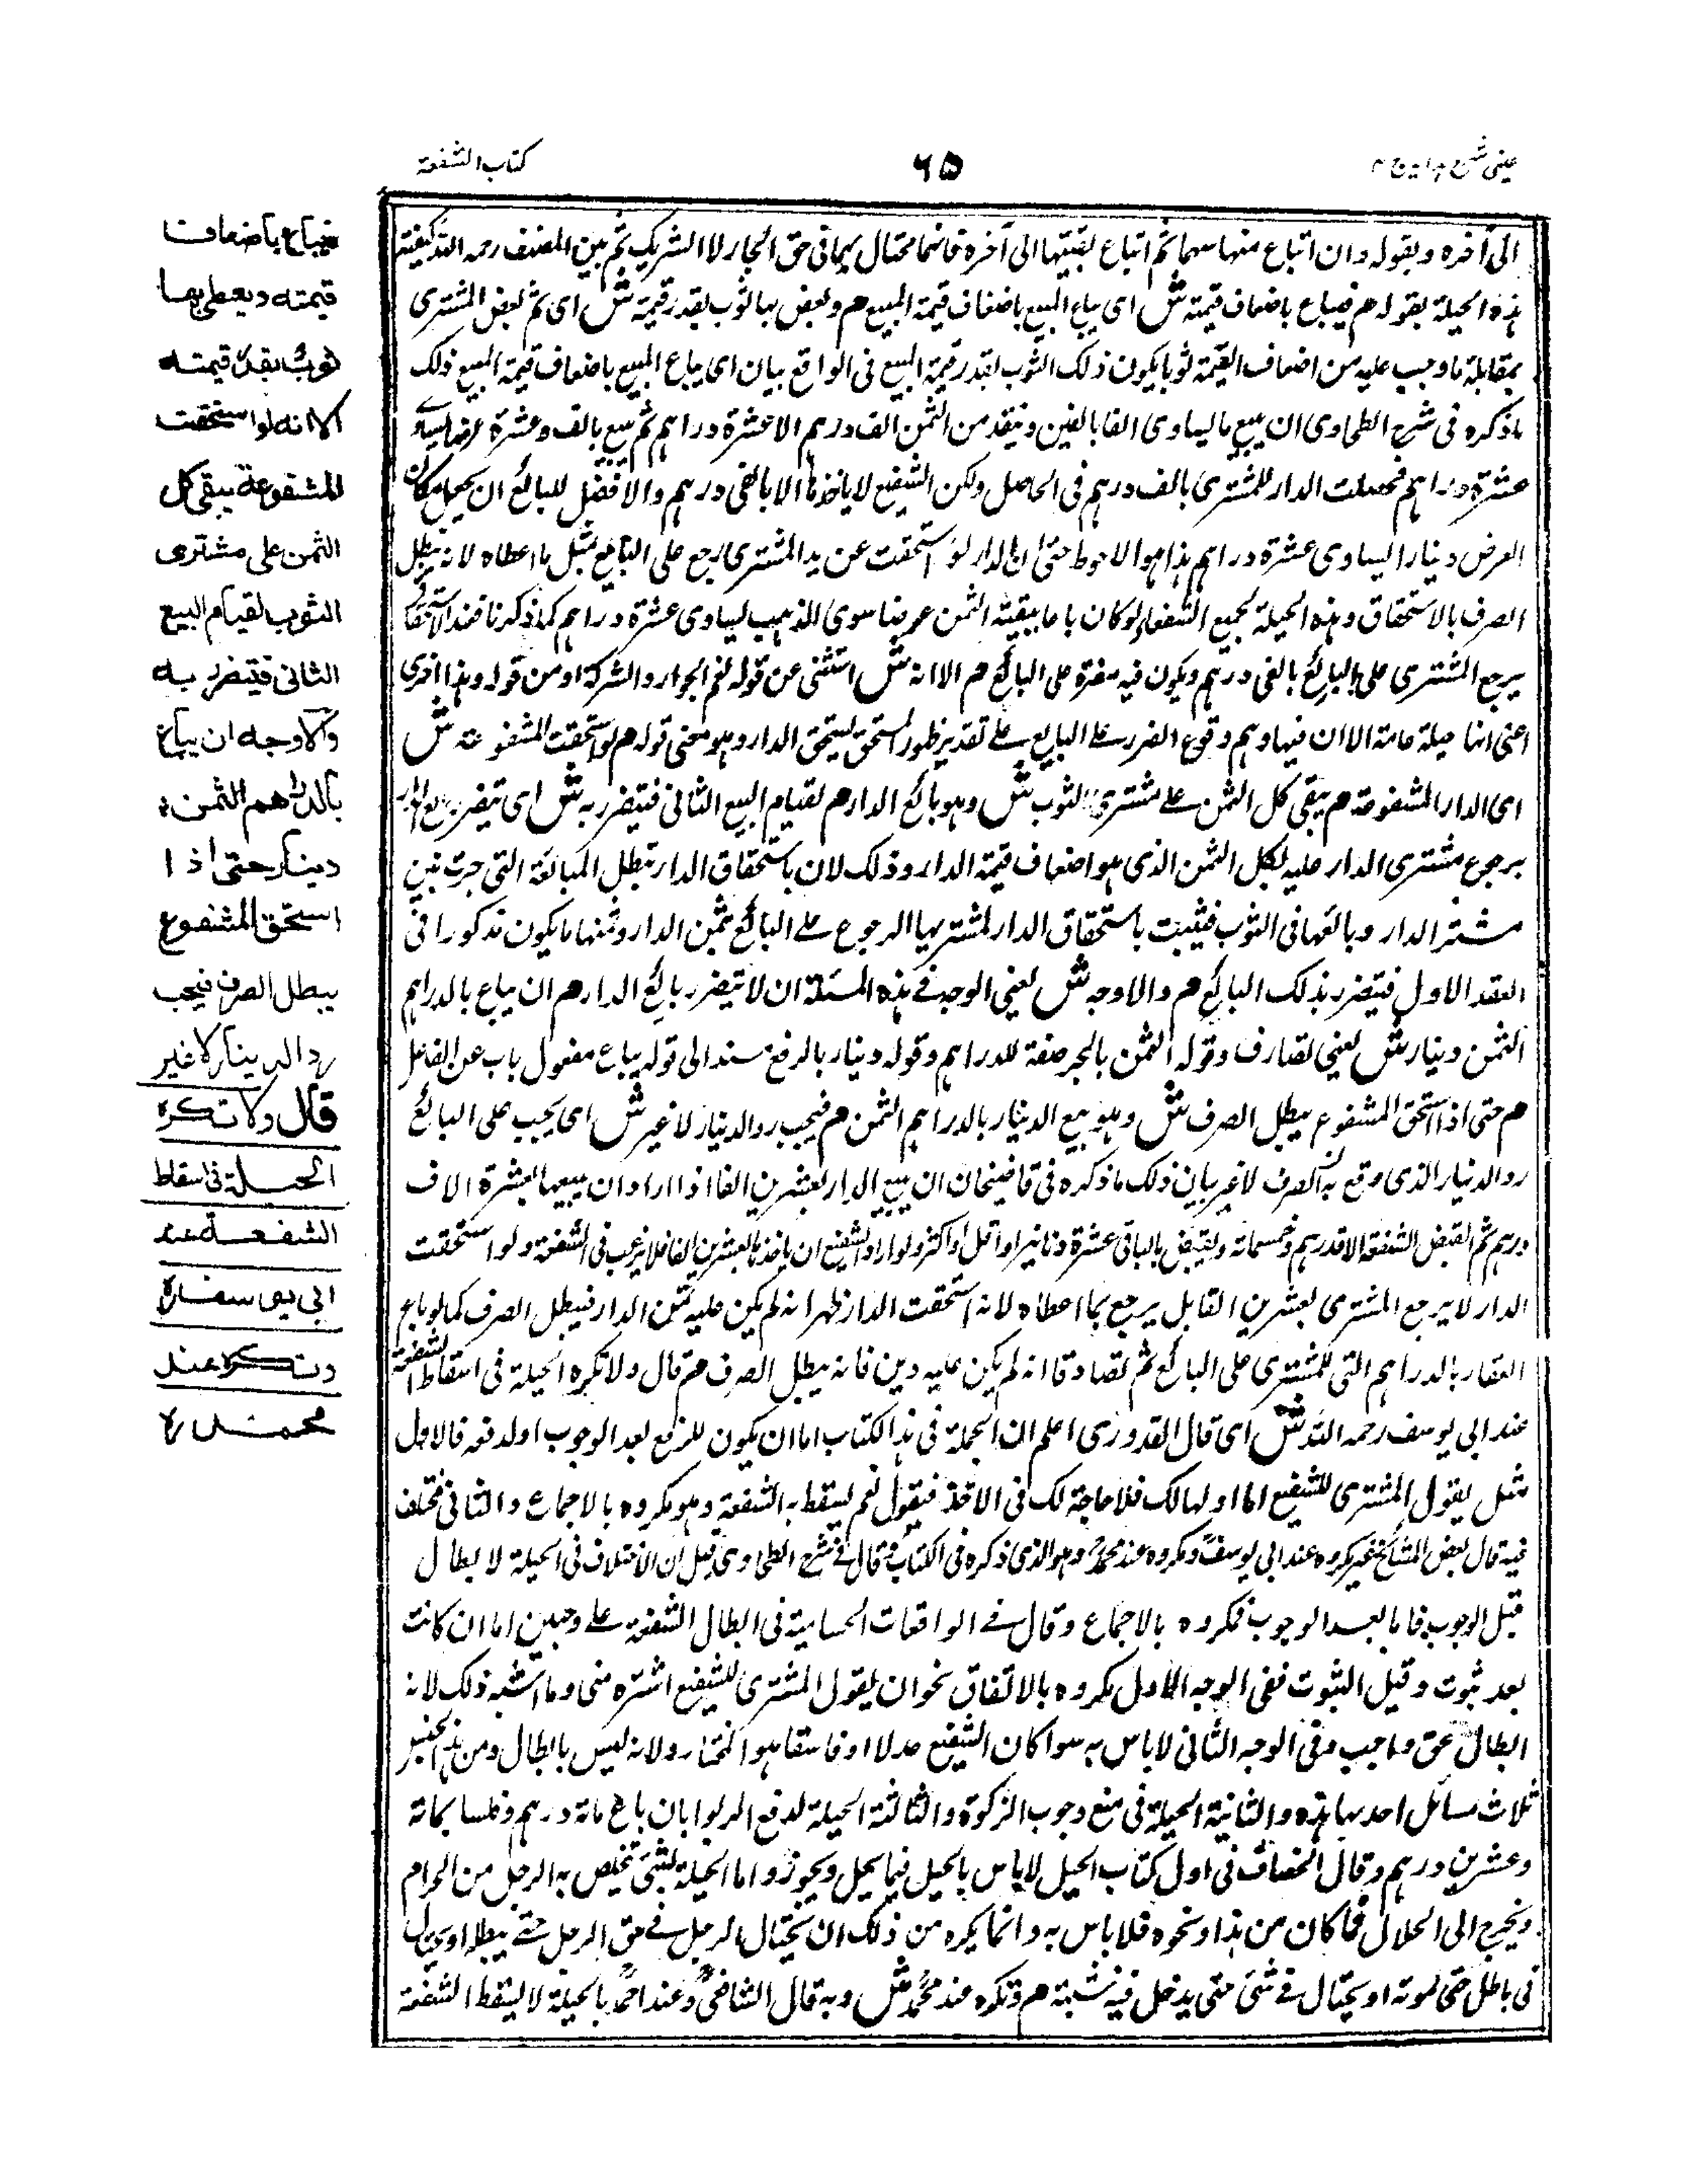 عینی شرح ہدایہ ج ۴
۶۵
کتاب الشفعة
الی آخره وبقوله وان ابتاع منها سهما ثم ابتاع بقیتها الی آخره فانهما محتال بهما فی حق الجار لا الشریک ثم بین المصنف رحمه الله کیفیة
هذه الحیلة بقوله هم فیباع باضعاف قیمته ش ای یباع المبیع باضعاف قیمة المبیع هم ویعطی بها ثوب بقدر قیمته ش ای ثم یعطی المشتری
بمقابلة ما وجب علیه من اضعاف القیمة ثوبا یکون ذلک الثوب بقدر قیمة المبیع فی الواقع بیان ای یباع المبیع باضعاف قیمة المبیع ذلک
ما ذکره فی شرح الطحاوی ان یبیع ما یساوی الفا بالفین وینقد من الثمن الف درهم الا عشرة دراهم ثم یبیع بالف وعشرة عرضا یساوی
عشرة دراهم فحصلت الدار للمشتری بالف درهم فی الحاصل ولکن الشفیع لا یاخذها الا بالفی درهم والافضل للبائع ان یجعل مکان
العرض دینارا یساوی عشرة دراهم هذا هو الاحوط حتی ان الدار لو استحقت عن ید المشتری یرجع علی البائع بمثل ما اعطاه لانه یبطل
الصرف بالاستحقاق وهذه الحیلة لجمیع الشفعاء لو کان باعا ببقیة الثمن عرضا سوی الذهب یساوی عشرة دراهم کما ذکرنا فعند الاستحقاق
یرجع المشتری علی البائع بالفی درهم ویکون فیه مضرة علی البائع هم الا انه ش استثنی عن قوله نعم الجوار والشرکة او من قوله وهذا اخری
اعنی انها حیلة عامة الا ان فیها وهم وقوع الضرر علی البایع علی تقدیر ظهور المستحق یستحق الدار وهو معنی قوله هم لو استحقت المشفوعة ش
ای الدار المشفوعة هم یبقی کل الثمن علی مشتری الثوب ش وهو بائع الدار هم لقیام البیع الثانی فیتضرر به ش ای یتضرر بائع الدار
برجوع مشتری الدار علیه بکل الثمن الذی هو اضعاف قیمة الدار وذلک لان باستحقاق الدار تبطل المبائعة التی جرت بین
مشتر الدار وبائعها فی الثوب فیثبت باستحقاق الدار لمشتریها الرجوع علی البائع بثمن الدار وثمنها ما یکون مذکورا فی
العقد الاول فیتضرر بذلک البائع هم والاوجه ش یعنی الوجه فی هذه المسئلة ان لا یتضرر بائع الدار هم ان یباع بالدراهم
الثمن دینار ش یعنی یصارف وقوله الثمن بالجر صفة للدراهم وقوله دینار بالرفع مسند الی قوله یباع مفعول ناب عن الفاعل
هم حتی اذا استحق المشفوع یبطل الصرف ش وهو بیع الدینار بالدراهم الثمن هم فیجب رد الدینار لا غیر ش ای یجب علی البائع
رد الدینار الذی وقع به الصرف لا غیر بیان ذلک ما ذکره فی قاضیخان ان یبیع الدار بعشرین الفا اذا اراد ان یبیعها بعشرة الاف
درهم ثم الا قدر درهم وخمسمائة ویقبض بالباقی عشرة دنانیر او اقل او اکثر ولو اراد الشفیع ان یاخذها بعشرین الفا فلا یرغب فی الشفعة ولو استحقت
الدار لا یرجع المشتری بعشرین القابل یرجع بما اعطاه لانه استحقت الدار ظهر انه لم یکن علیه ثمن الدار فیبطل الصرف کما لو باع
العقار بالدراهم التی للمشتری علی البائع ثم تصادقا انه لم یکن علیه دین فانه یبطل الصرف هم قال ولا تکره الحیلة فی اسقاط الشفعة
عند ابی یوسف رحمه الله ش ای قال القدوری اعلم ان الحیلة فی هذا الکتاب اما ان یکون للرفع بعد الوجوب او لدفعه فالاول
مثل یقول المشتری للشفیع انا اولیها لک فلا حاجة لک فی الاخذ فیقول نعم یسقط به الشفعة وهو مکروه بالاجماع والثانی مختلف
فیه قال بعض المشائخ غیر مکروه عند ابی یوسف ومکروه عند محمد وهو الذی ذکره فی الکتاب وقال فی شرح الطحاوی قیل ان الاختلاف فی الحیلة لابطال
قبل الوجوب فاما بعد الوجوب فمکروه بالاجماع وقال فی الواقعات الحسامیة فی ابطال الشفعة علی وجهین اما ان کانت
بعد ثبوت وقبل الثبوت ففی الوجه الاول مکروه بالاتفاق نحو ان یقول المشتری للشفیع اشتره منی وما اشبه ذلک لانه
ابطال حق واجب وفی الوجه الثانی لا باس به سوا کان الشفیع عدلا او فاسقا هو المختار ولانه لیس بابطال ومن هذا الجنس
ثلاث مسائل احدیها هذه والثانیة الحیلة فی منع وجوب الزکوة والثالثة الحیلة لدفع الربوا بان باع مائة درهم وفلسا بمائة
وعشرین درهم وقال الخصاف فی اول کتاب الحیل لا باس بالحیل فیما یحل ویجوز واما الحیلة بشیٔ یتخلص به الرجل من الحرام
ویخرج الی الحلال فما کان من هذا ونحوه فلا باس به وانما یکره من ذلک ان یحتال الرجل فی حق الرجل حتی یبطله او یحتال
فی باطل حتی یموته او یحتال فی شیٔ حتی یدخل فیه شبهة هم وتکره عند محمد ش وبه قال الشافعی وعند احمد بالحیلة لا یسقط الشفعة
فیباع باضعاف
قیمته ویعطی بها
ثوب بقدر قیمته
الا انه لو استحقت
المشفوعة یبقی کل
الثمن علی مشتری
الثوب لقیام البیع
الثانی فیتضرر به
والاوجه ان یباع
بالدراهم الثمن
دینار حتی اذا
استحق المشفوع
یبطل الصرف فیجب
رد الدینار لا غیر
قال ولا تکره
الحیلة فی اسقاط
الشفعة عند
ابی یوسف رہ
وتکره عند
محمد رہ